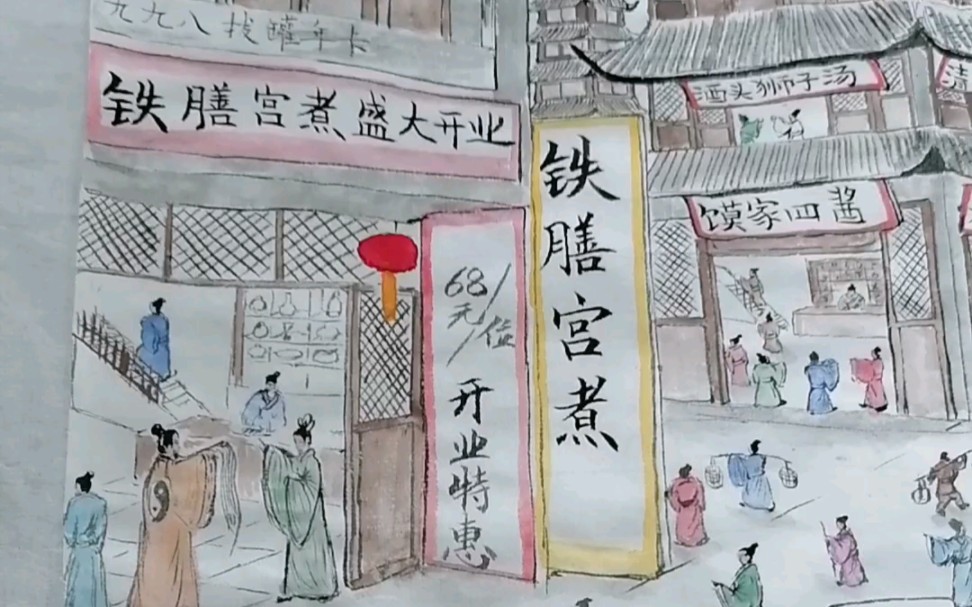 九九八拔罐年卡
铁膳宫煮盛大开业
68元/位
开业特惠
铁膳宫煮
酒头狮子汤
馍家四酱
清